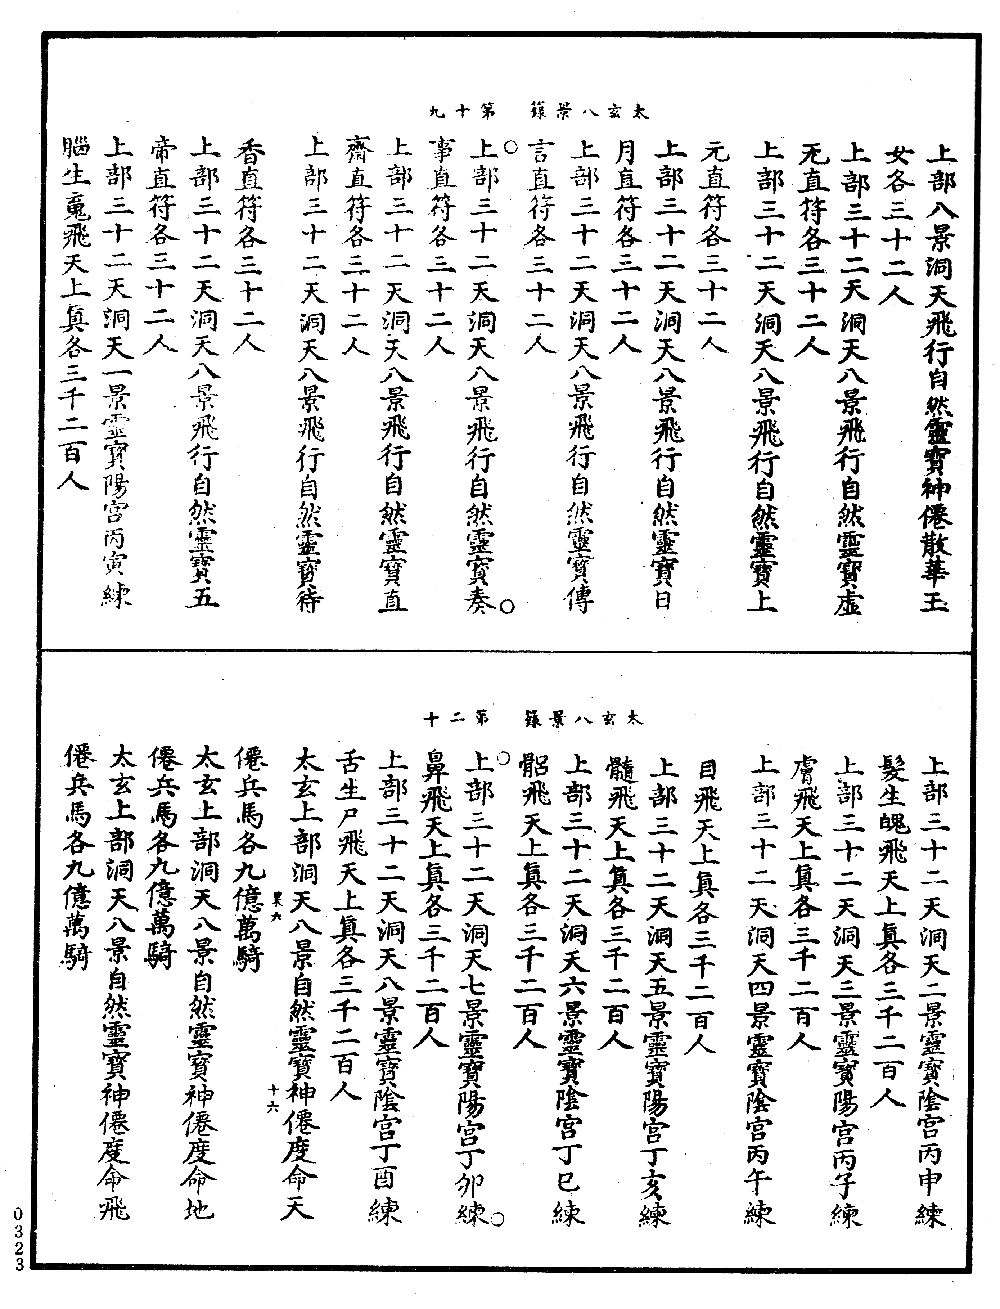 太玄八景籙　第十九
上部八景洞天飛行自然靈寶神僊散華玉
女各三十二人
上部三十二天洞天八景飛行自然靈寶虛
无直符各三十二人
上部三十二天洞天八景飛行自然靈寶上
元直符各三十二人
上部三十二天洞天八景飛行自然靈寶日
月直符各三十二人
上部三十二天洞天八景飛行自然靈寶傳
言直符各三十二人
上部三十二天洞天八景飛行自然靈寶奏
事直符各三十二人
上部三十二天洞天八景飛行自然靈寶直
齋直符各三十二人
上部三十二天洞天八景飛行自然靈寶侍
香直符各三十二人
上部三十二天洞天八景飛行自然靈寶五
帝直符各三十二人
上部三十二天洞天一景靈寶陽宮丙寅練
腦生䰟飛天上眞各三千二百人
太玄八景籙　第二十
上部三十二天洞天二景靈寶陰宮丙申練
髮生魄飛天上眞各三千二百人
上部三十二天洞天三景靈寶陽宮丙子練
膚飛天上眞各三千二百人
上部三十二天洞天四景靈寶陰宮丙午練
目飛天上眞各三千二百人
上部三十二天洞天五景靈寶陽宮丁亥練
髓飛天上眞各三千二百人
上部三十二天洞天六景靈寶陰宮丁巳練
䯧飛天上眞各三千二百人
上部三十二天洞天七景靈寶陽宮丁卯練
鼻飛天上眞各三千二百人
上部三十二天洞天八景靈寶陰宮丁酉練
舌生尸飛天上眞各三千二百人
太玄上部洞天八景自然靈寶神僊度命天
僊兵馬各九億萬騎
太玄上部洞天八景自然靈寶神僊度命地
僊兵馬各九億萬騎
太玄上部洞天八景自然靈寶神僊度命飛
僊兵馬各九億萬騎
十六
0323